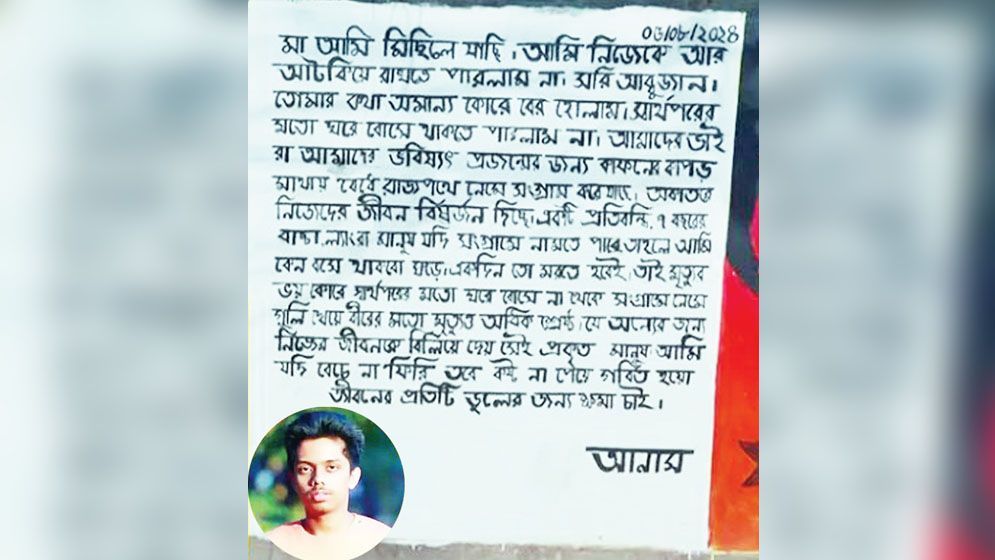 ০৫/০৮/২০২৪
মা আমি মিছিলে যাচ্ছি। আমি নিজেকে আর
আটকিয়ে রাখতে পারলাম না। সরি আব্বুজান।
তোমার কথা অমান্য কোরে বের হোলাম। স্বার্থপরের
মতো ঘরে বোসে থাকতে পারলাম না। আমাদের ভাই
রা আমাদের ভবিষ্যৎ প্রজন্মের জন্য কাফনের কাপড়
মাথায় বেধে রাজপথে নেমে সংগ্রাম করে যাচ্ছে। অকাতরে
নিজেদের জীবন বিষর্জন দিচ্ছে। একটি প্রতিবন্ধি, ৭ বছরের
বাচ্চা, ল্যাংরা মানুষ যদি সংগ্রামে নামতে পারে, তাহলে আমি
কেন বসে থাকবো ঘড়ে। একদিন তো মরতে হবেই। তাই মৃত্যুর
ভয় কোরে স্বার্থপরের মতো ঘরে বোসে না থেকে সংগ্রামে নেমে
গুলি খেয়ে বীরের মতো মৃত্যুও অধিক শ্রেষ্ঠ। যে অন্যের জন্য
নিজের জীবনকে বিলিয়ে দেয় সেই প্রকৃত মানুষ। আমি
যদি বেচে না ফিরি তবে কষ্ট না পেয়ে গর্বিত হয়ো
জীবনের প্রতিটি ভুলের জন্য ক্ষমা চাই।
আনাস